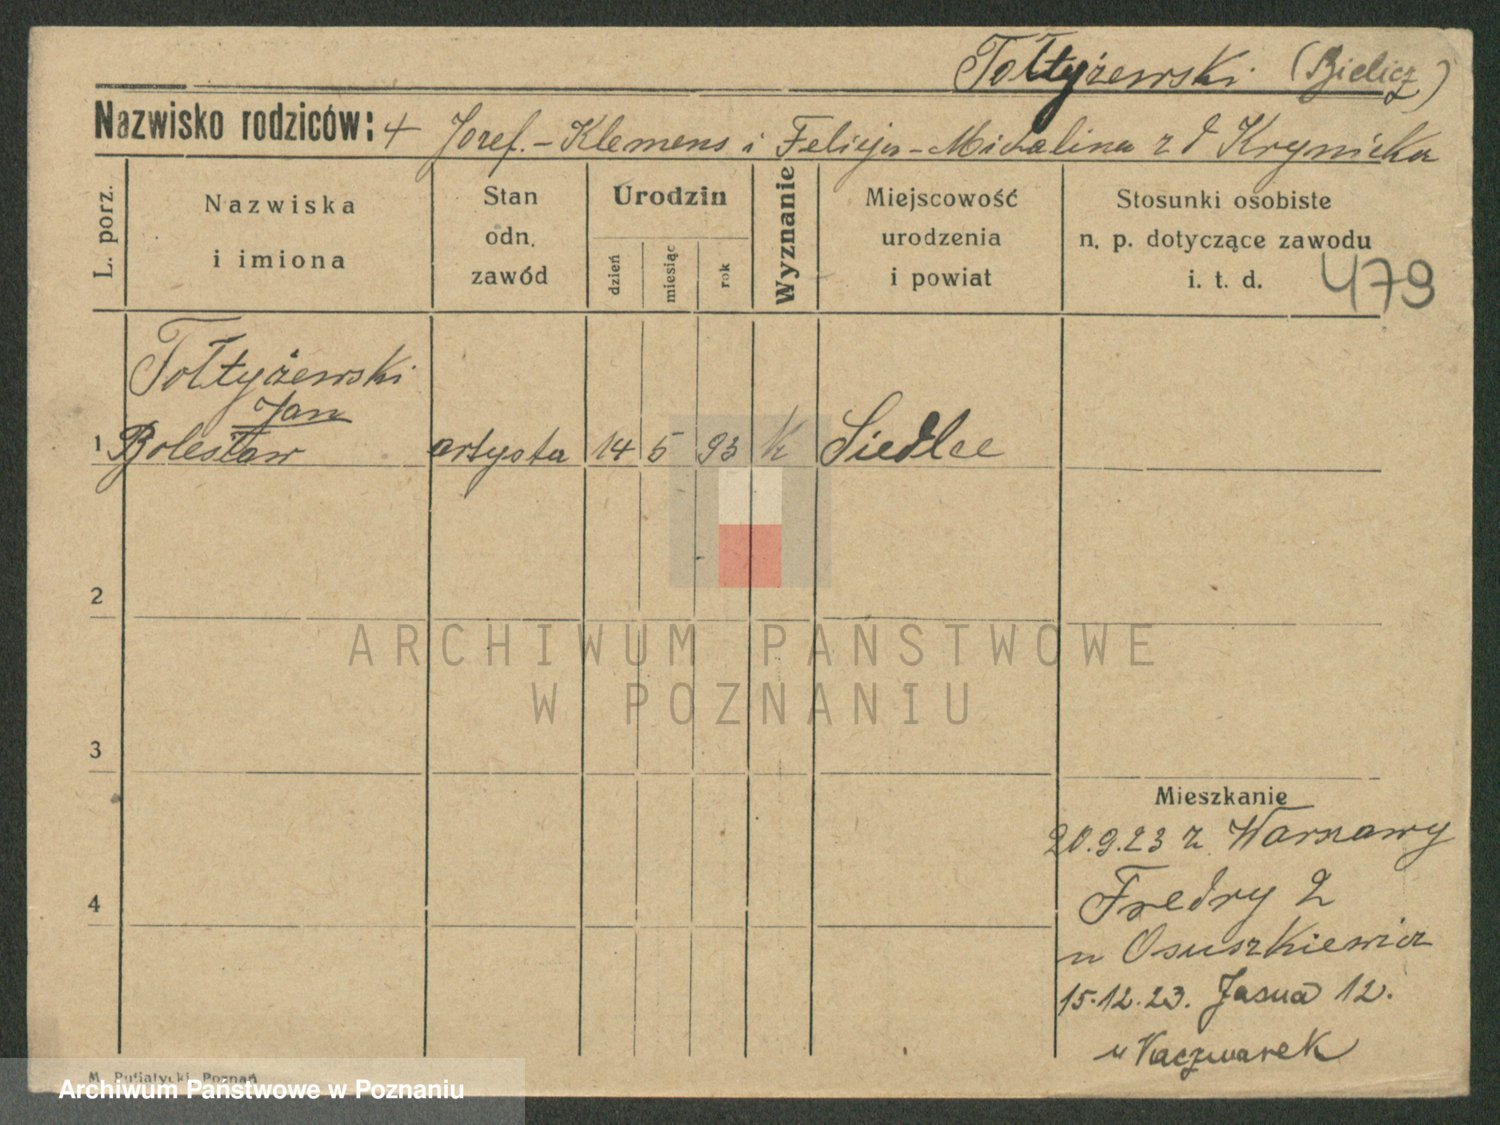 Tołtyżewski (Bielicz)
Nazwisko rodziców: + Józef.-Klemens i Felicja-Michalina z d Krynicka
L. porz.
Nazwiska
i imiona
Stan
odn.
zawód
Urodzin
dzień
miesiąc
rok
Wyznanie
Miejscowość
urodzenia
i powiat
Stosunki osobiste
n. p. dotyczące zawodu
i. t. d.
479
Tołtyżewski
Jan
1 Bolesław artysta 14 5 93 k Siedlce
2
ARCHIWUM PAŃSTWOWE
W POZNANIU
3
Mieszkanie
20.9.23 z Warszawy
4
Fredry 2
u Osuszkiewicz
15.12.23. Jasna 12.
u Kaczmarek
M. Putiatycki Poznań
Archiwum Państwowe w Poznaniu